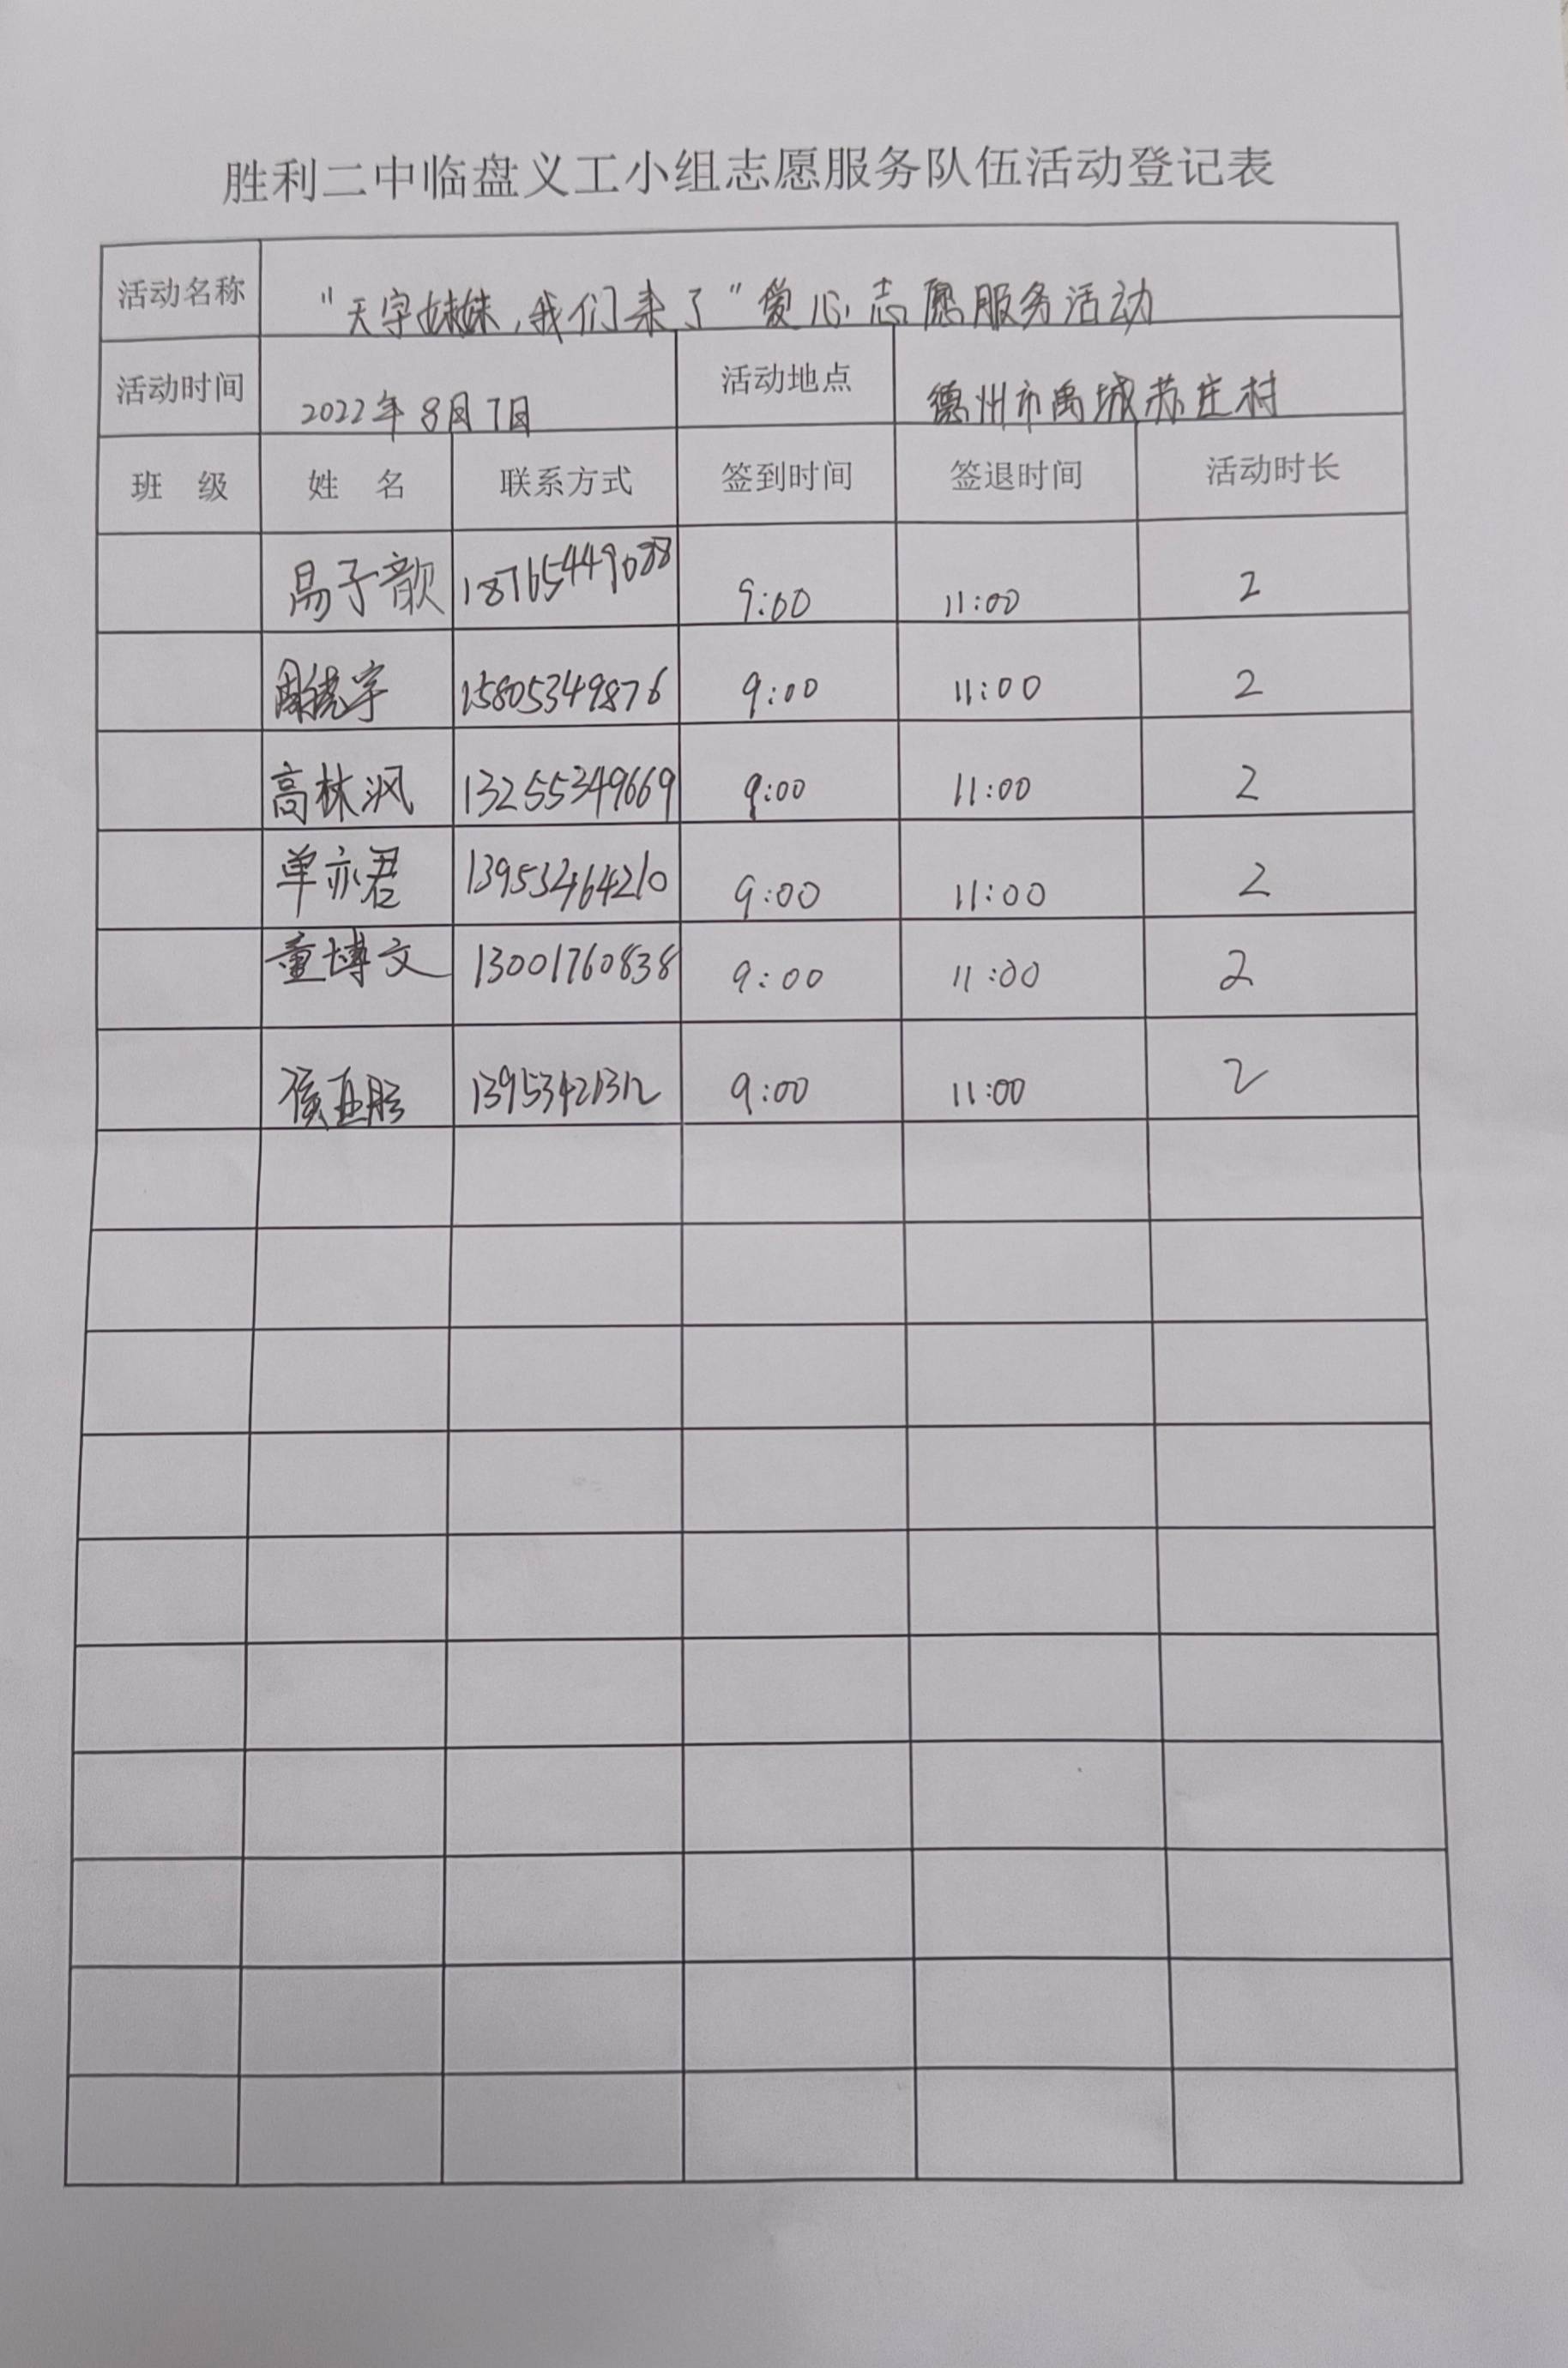 胜利二中临盘义工小组志愿服务队伍活动登记表
活动名称 "天宇妹妹,我们来了"爱心志愿服务活动
活动时间 2022年8月7日 活动地点 德州市禹城苏庄村
班 级 姓 名 联系方式 签到时间 签退时间 活动时长
易子歆 18765449088 9:00 11:00 2
15805349876 9:00 11:00 2
高林沨 13255349669 9:00 11:00 2
单亦君 13953464210 9:00 11:00 2
董博文 13001760838 9:00 11:00 2
13953421312 9:00 11:00 2